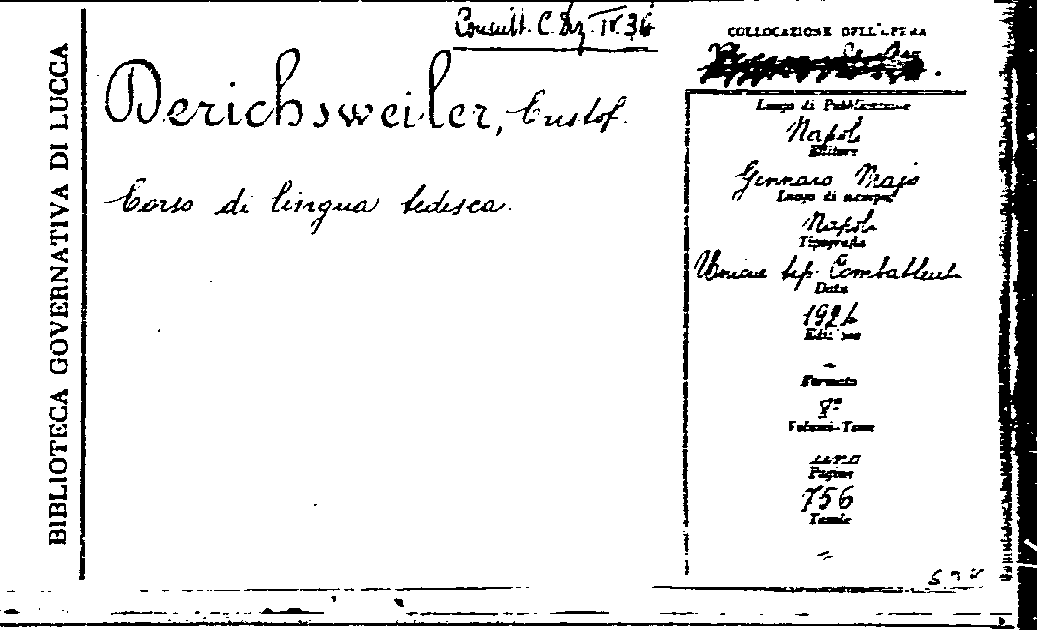 BIBLIOTECA GOVERNATIVA DI LUCCA
Consult. C. Diz. IV. 36
Derichsweiler, Cristof.
Corso di lingua tedesca.
COLLOCAZIONE DELL'OPERA
Luogo di Pubblicazione
Napoli
Editore
Gennaro Majo
Luogo di stampa
Napoli
Tipografia
Unione tip. Combattenti
Data
Edizione
-
Formato
8°
Volumi-Tomi
uno
Pagine
756
Tavole